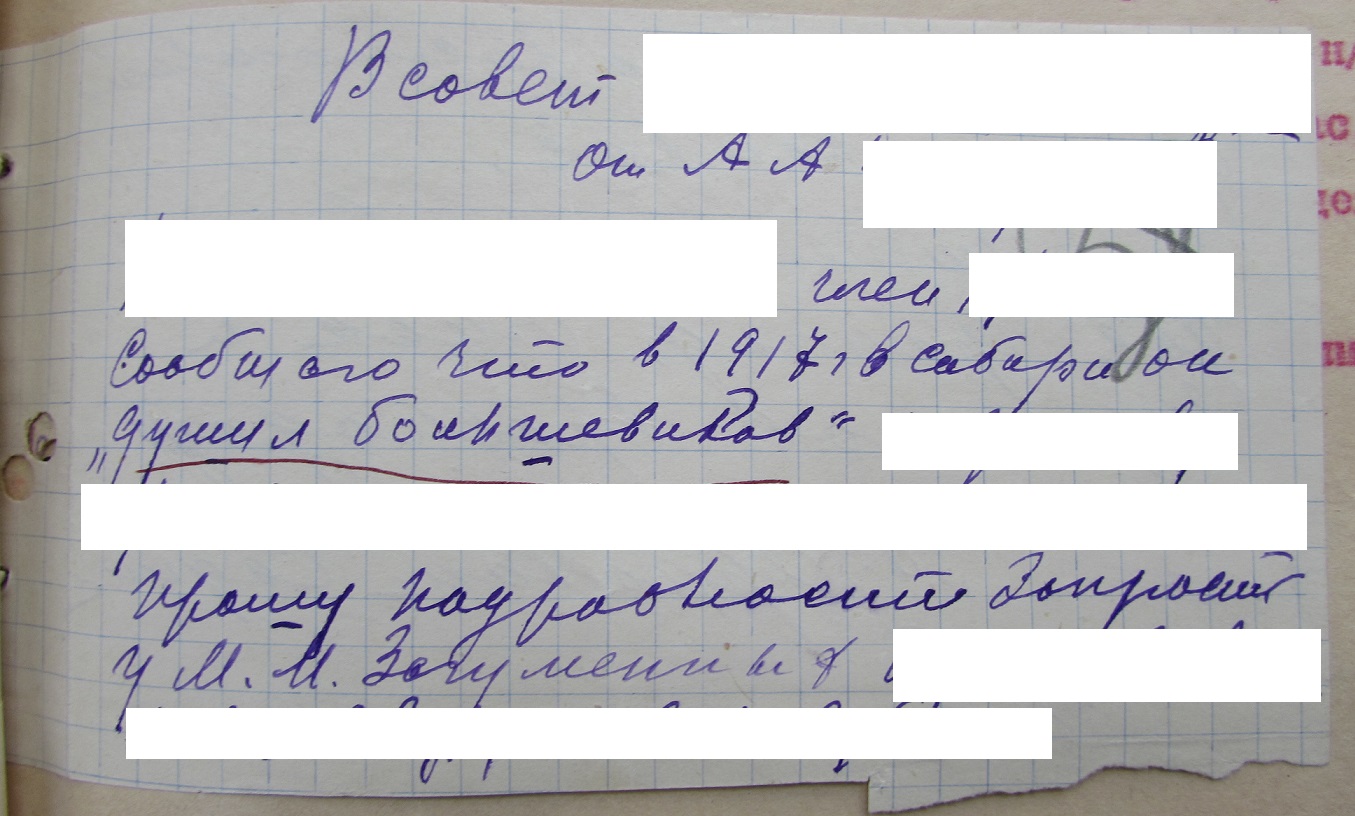 В совет
от А А
член
Сообщаю что в 1917 г в он
„душил большевиков“
прошу подробности Запросить
у М. М. Загуменных